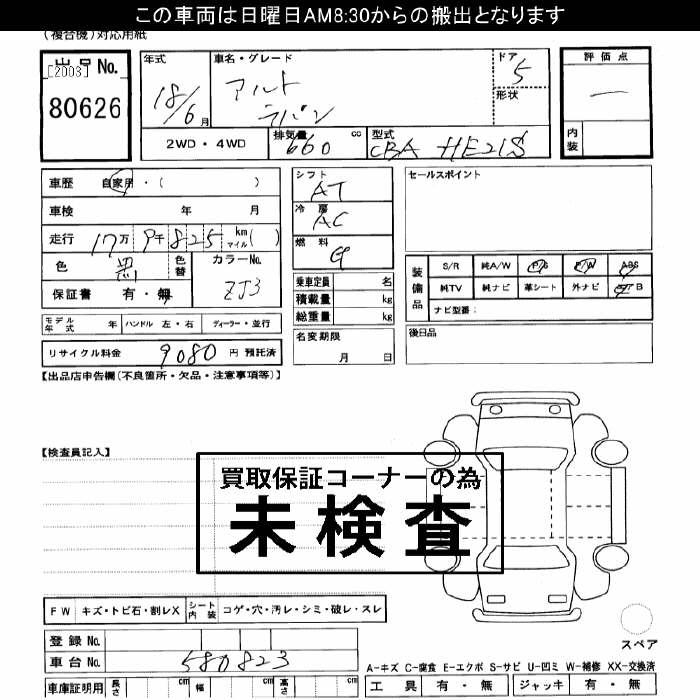 この車両は日曜日AM8:30からの搬出となります
(複合機)対応用紙
出品No.
[2003]
80626
年式
18/6月
車名・グレード
アルト
ラパン
ドア
5
形状
評価点
―
内装
2WD・4WD
排気量 660 cc
型式 CBA HE21S
車歴 自家用・( )
車検 年 月
走行 17万9千825 km マイル( )
色 黒 色替
カラーNo. ZJ3
保証書 有・無
モデル年式 年 ハンドル 左・右 ディーラー・並行
リサイクル料金 9080 円 預託済
シフト AT
冷房 AC
燃料 G
乗車定員 名
積載量 kg
総重量 kg
名変期限
月 日
セールスポイント
装備品
S/R 純A/W P/S P/W ABS
純TV 純ナビ 革シート 外ナビ エアB
ナビ型番:
後日品
【出品店申告欄(不良箇所・欠品・注意事項等)】
【検査員記入】
買取保証コーナーの為
未検査
FW キズ・トビ石・割レX シート内装 コゲ・穴・汚レ・シミ・破レ・スレ
登録No.
車台No. 580823
車庫証明用 長さ cm 幅 cm 高さ cm
スペア
A-キズ C-腐食 E-エクボ S-サビ U-凹ミ W-補修 XX-交換済
工具 有・無 ジャッキ 有・無